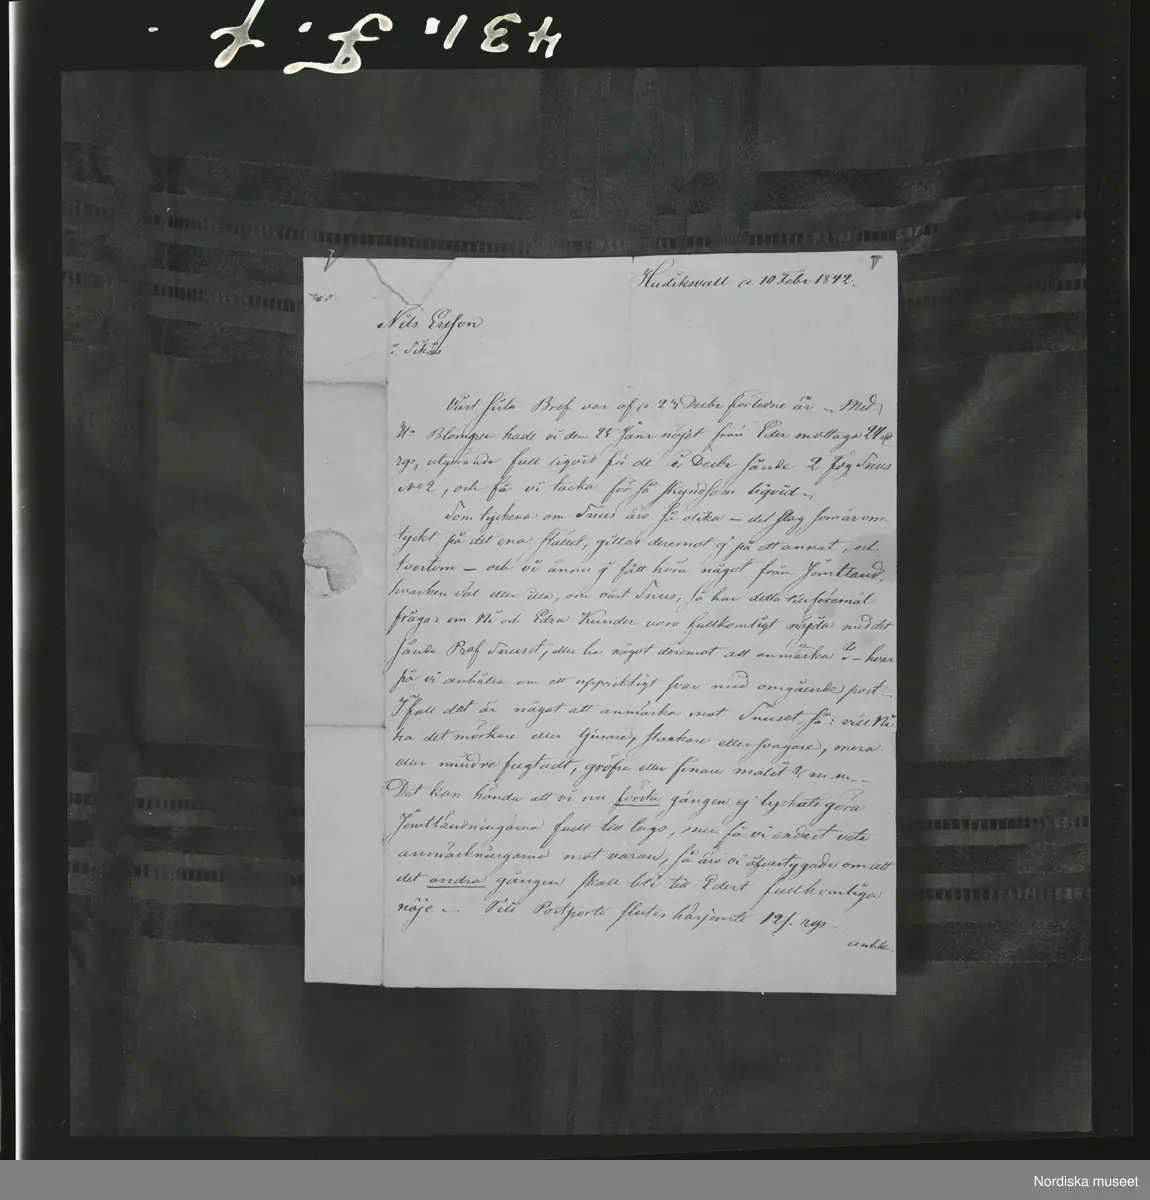 431. F. f.
Hudiksvall d. 10 Febr 1842.
Nils Ersson
i
Vårt sista Bref var af d. 23 Decbr förledne år – Med
Hr Blomgren hade vi den 25 Janr nöjet från Eder mottaga 24
rgs, utgörande full liqvid för de i Decbr sände 2 fjg Snus
No 2, och få vi tacka för så skyndsam liqvid –
Som tyckena om Snus äro så olika – det slag som är om-
tyckt på det ena stället, gillas deremot ej på ett annat, och
tvertom – och vi ännu ej fått höra något från Jemtland,
hvarken väl eller illa, om vårt Snus, så har detta till föremål
fråga: om Ni och Edra Kunder voro fullkomligt nöjda med det
sända Prof Snuset, eller ha något deremot att anmärka? – hvar
på vi anhålla om ett uppriktigt svar med omgående post –
Ifall det är något att anmärka mot Snuset, så: vill Ni
ha det mörkare eller ljusare, starkare eller svagare, mera
eller mindre fugtadt, gröfre eller finare malet? m. m. –
Det kan hända att vi nu första gången ej lyckats göra
Jemtländningarna fullt till lags, men få vi endast veta
anmärkningarna mot varan, så äro vi öfvertygade om att
det andra gången skall bli till Edert fullkomliga
nöje – Till Postporto slutes härjemte 12 s. rgs –
Nordiska museet